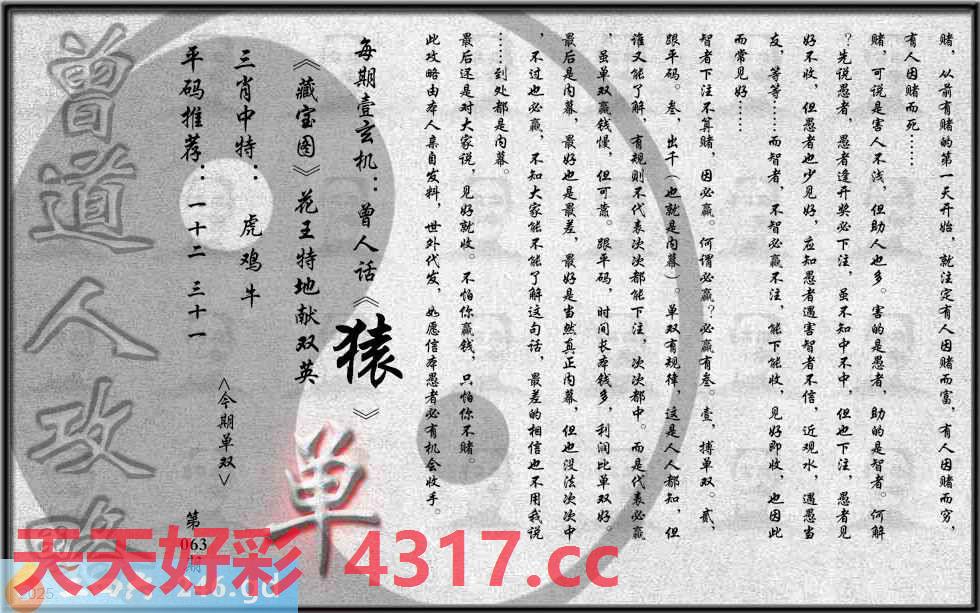 赌，从前有赌的第一天开始，就注定有人因赌而富，有人因赌而穷，
有人因赌而死……
赌，可说是害人不浅，但助人也多。害的是愚者，助的是智者。何解
？先说愚者，愚者逢开奖必下注，虽不知中不中，但也下注，愚者见
好不收，但愚者也少见好，应知愚者遇害智者不信，近观水，遇愚当
友，等等……而智者，不智必赢不注，能下能收，见好即收，也因此
而常见好……
智者下注不算赌，因必赢。何谓必赢？必赢有叁。壹，搏单双。贰，
跟平码。叁，出千（也就是内幕）。单双有规律，这是人人都知，但
谁又能了解，有规则不代表次次都能下注，次次都中。而是代表必赢
，虽单双赢钱慢，但可靠。跟平码，时间长本钱多，利润比单双好。
最后是内幕，最好也是最差，最好是当然真正内幕，但也没法次次中
，不过也必赢，不知大家能不能了解这句话，最差的相信也不用我说
……到处都是内幕。
最后还是对大家说，见好就收。不怕你赢钱，只怕你不赌。
此攻略由本人亲自发料，世外代发，如愿信本愚者必有机会收手。
每期壹玄机：曾人话《猿》
《藏宝图》花王特地献双英
三肖中特：虎鸡牛
平码推荐：一十二 三十一
<今期单双>
单
第
063
期
曾道人攻略
天天好彩 4317.cc
2025
246.gd